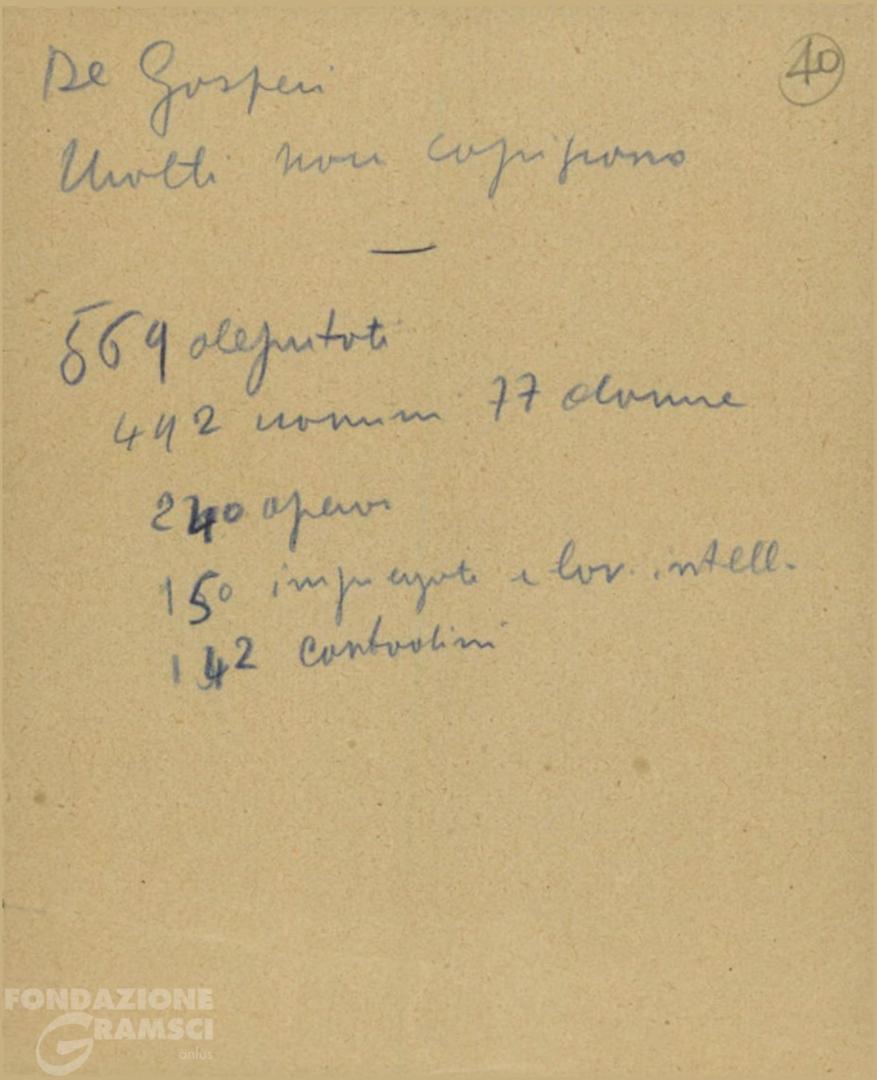 40
De Gasperi
Molti non capiscono
—
569 deputati
492 uomini 77 donne
240 operai
150 impiegati e lav. intell.
142 contadini
FONDAZIONE
GRAMSCI
onlus